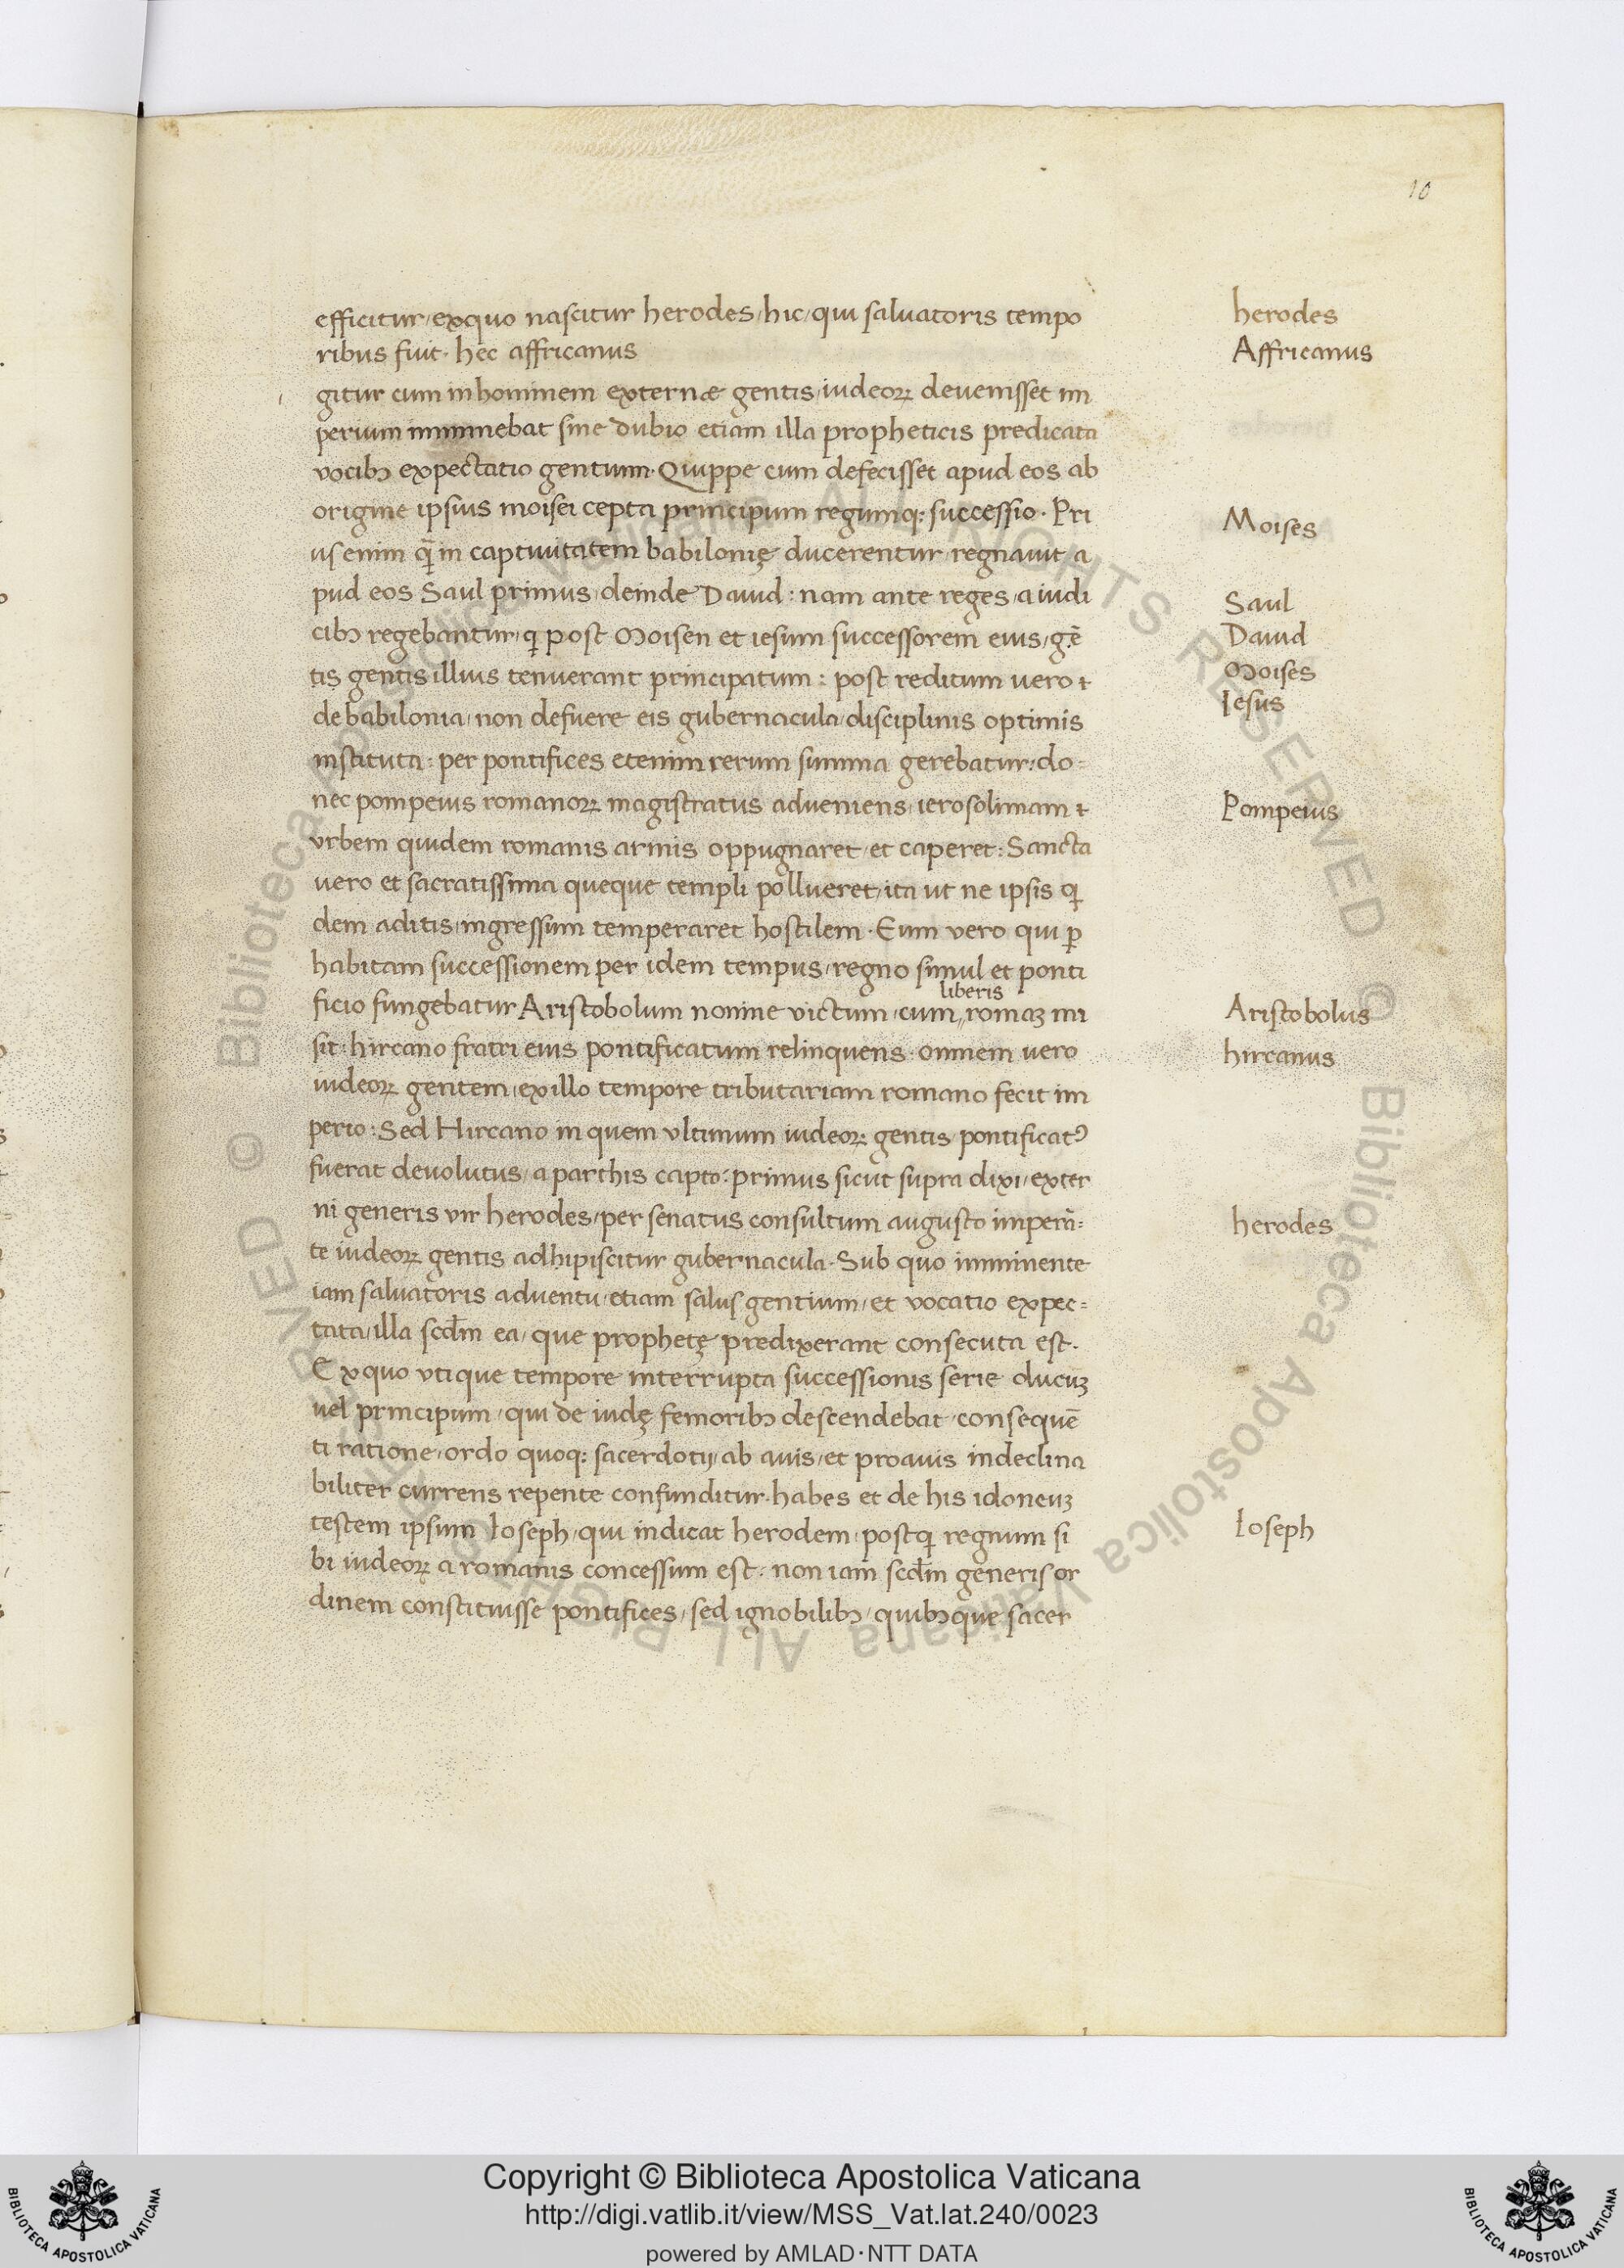 10
efficitur/exquo nascitur herodes/hic/qui saluatoris tempo
ribus fuit· hec affricanus
gitur cum inhominem externæ gentis/iudeoꝝ deuenisset im
perium imminebat sine dubio etiam illa propheticis predicata
vocibꝫ expectatio gentium· Quippe cum defecisset apud eos ab
origine ipsius moisei cepta principum regumqꝫ successio· Pri
us enim qᷓ in captiuitatem babilonię ducerentur regnauit a
pud eos Saul primus/deinde Dauid: nam ante reges/a iudi
cibꝫ regebantur/qͥ post Moisen et iesum successorem eius/gē
tis gentis illius tenuerant principatum: post reditum uero ⁊
de babilonia/non defuere eis gubernacula/disciplinis optimis
instituta: per pontifices etenim rerum summa gerebatur: do=
nec pompeius romanoꝝ magistratus adueniens/ierosolimam ⁊
vrbem quidem romanis armis oppugnaret/et caperet: Sancta
uero et sacratissima queque templi pollueret/ita ut ne ipsis qͥ
dem aditis/ingressum temperaret hostilem· Eum vero qui ꝑ
habitam successionem per idem tempus/regno simul et ponti
liberis
ficio fungebatur Aristobolum nomine victum/cum,,romaꝫ mi
sit: hircano fratri eius pontificatum relinquens: omnem uero
iudeoꝝ gentem/exillo tempore tributariam romano fecit im
perio: Sed Hircano in quem vltimum iudeoꝝ gentis pontificatꝰ
fuerat deuolutus/a parthis capto: primus sicut supra dixi/exter
ni generis vir herodes/per senatus consultum augusto imperā=
te iudeoꝝ gentis adhipiscitur gubernacula· Sub quo imminente
iam saluatoris aduentu/etiam salus gentium/et vocatio expec=
tata/illa scd̄m ea/que prophetę predixerant consecuta est·
Exquo vtique tempore interrupta successionis serie ducuꝫ
uel principum/qui de iudę femoribꝫ descendebat/consequē
ti ratione/ordo quoqꝫ sacerdotij/ab auis/et proauis indeclina
biliter currens repente confunditur· habes et de his idoneuꝫ
testem ipsum Ioseph/qui indicat herodem/postqͣ regnum si
bi iudeoꝝ a romanis concessum est· non iam scd̄m generis or
dinem constituisse pontifices/sed ignobilibꝫ/quibꝫque sacer
herodes
Affricanus
Moises
Saul
Dauid
Moises
Iesus
Pompeius
Aristobolus
hircanus
herodes
Ioseph
© Biblioteca Apostolica Vaticana ALL RIGHTS RESERVED © Biblioteca Apostolica Vaticana ALL RIGHTS RESERVED
Copyright © Biblioteca Apostolica Vaticana
http://digi.vatlib.it/view/MSS_Vat.lat.240/0023
powered by AMLAD·NTT DATA
BIBLIOTECA APOSTOLICA VATICANA
BIBLIOTECA APOSTOLICA VATICANA